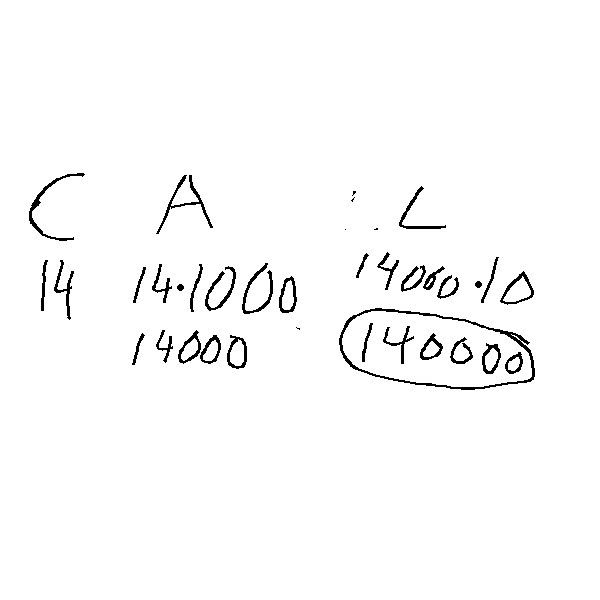 C A L
14 14·1000 14000·10
14000 140000